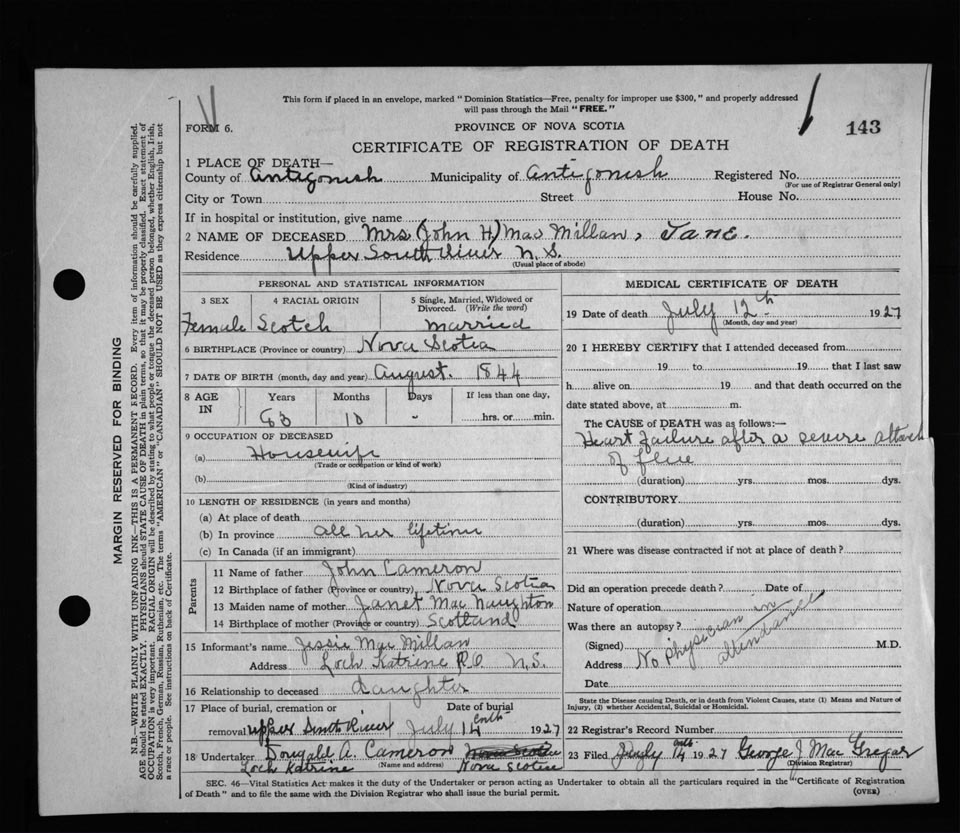 This form if placed in an envelope, marked "Dominion Statistics—Free, penalty for improper use $300," and properly addressed
will pass through the Mail "FREE."
FORM 6. PROVINCE OF NOVA SCOTIA 143
CERTIFICATE OF REGISTRATION OF DEATH
1 PLACE OF DEATH—
County of Antigonish Municipality of Antigonish Registered No.
(For use of Registrar General only)
City or Town Street House No.
If in hospital or institution, give name
2 NAME OF DECEASED Mrs (John H) Mac Millan, Jane.
Residence Upper South River N. S.
(Usual place of abode)
PERSONAL AND STATISTICAL INFORMATION
3 SEX 4 RACIAL ORIGIN 5 Single, Married, Widowed or
Divorced. (Write the word)
Female Scotch married
6 BIRTHPLACE (Province or country) Nova Scotia
7 DATE OF BIRTH (month, day and year) August. 1844
8 AGE IN Years Months Days If less than one day,
83 10 - hrs. or min.
9 OCCUPATION OF DECEASED
(a) Housewife
(Trade or occupation or kind of work)
(b)
(Kind of industry)
10 LENGTH OF RESIDENCE (in years and months)
(a) At place of death
(b) In province All her lifetime
(c) In Canada (if an immigrant)
Parents
11 Name of father John Cameron
12 Birthplace of father (Province or country) Nova Scotia
13 Maiden name of mother Janet Mac Naughton
14 Birthplace of mother (Province or country) Scotland
15 Informant's name Jessie Mac Millan
Address Loch Katrine P.O N.S.
16 Relationship to deceased daughter
17 Place of burial, cremation or Date of burial
removal Upper South River July 14 1927
18 Undertaker Dougald A. Cameron Nova Scotia
Loch Katrine (Name and address) Nova Scotia
MEDICAL CERTIFICATE OF DEATH
19 Date of death July 12th 1927
(Month, day and year)
20 I HEREBY CERTIFY that I attended deceased from
19 to 19 that I last saw
h alive on 19 and that death occurred on the
date stated above, at m.
The CAUSE of DEATH was as follows:—
Heart failure after a severe attack
of flue
(duration) yrs. mos. dys.
CONTRIBUTORY
(duration) yrs. mos. dys.
21 Where was disease contracted if not at place of death?
Did an operation precede death? Date of
Nature of operation
Was there an autopsy?
(Signed) M.D.
No physician in
attendance
Address
Date
State the Disease causing Death, or in death from Violent Causes, state (1) Means and Nature of
Injury, (2) whether Accidental, Suicidal or Homicidal.
22 Registrar's Record Number
23 Filed July 14 1927 George J Mac Gregor
(Division Registrar)
SEC. 46—Vital Statistics Act makes it the duty of the Undertaker or person acting as Undertaker to obtain all the particulars required in the "Certificate of Registration
of Death" and to file the same with the Division Registrar who shall issue the burial permit.
(OVER)
MARGIN RESERVED FOR BINDING
N.B.—WRITE PLAINLY WITH UNFADING INK—THIS IS A PERMANENT RECORD. Every item of information should be carefully supplied.
AGE should be stated EXACTLY. PHYSICIANS should STATE CAUSE OF DEATH in plain terms, so that it may be properly classified. Exact statement of
OCCUPATION is very important. RACIAL ORIGIN will be described by stating to what people or tongue the deceased person belonged, whether English, Irish,
Scotch, French, German, Russian, Ruthenian, etc. The terms "AMERICAN" or "CANADIAN" SHOULD NOT BE USED as they express citizenship but not
a race or people. See instructions on back of Certificate.